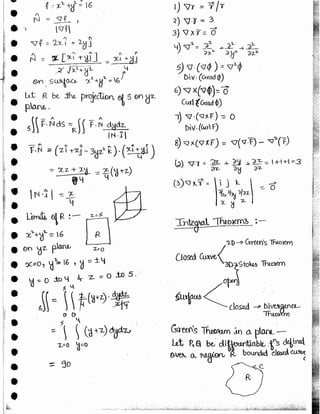 f : x² + y² = 16
N̂ = ∇f / |∇f|
∇f = 2x î + 2y ĵ
N̂ = 2[x î + y ĵ] / 2√(x²+y²) = (x î + y ĵ)/4
on surface x² + y² = 16
Let R be the projection of S on yz
plane.
∫∫_S F̄·N̂ ds = ∫∫_R F̄·N̂ dydz / |N̂·î|
F̄·N̂ = (z î + x ĵ - 3yz² k̂)·((x î + y ĵ)/4)
= (xz + xy)/4 = x/4 (y+z)
|N̂·î| = x/4
Limits of R :— z=5
x²+y²=16 R
on yz plane z=0
x=0, y²=16, y = ±4
y = 0 to 4 & z = 0 to 5.
∫∫_S = ∫₀⁵ ∫₀⁴ x/4 (y+z) · dydz / (x/4)
= ∫_{z=0}^5 ∫_{y=0}^4 (y+z) dydz
= 90
1) ∇r = r̄/r
2) ∇·r̄ = 3
3) ∇ × r̄ = 0̄
4) ∇² = ∂²/∂x² + ∂²/∂y² + ∂²/∂z²
5) ∇·(∇φ) = ∇²φ
Div·(Grad φ)
6) ∇ × (∇φ) = 0̄
Curl (Grad φ)
7) ∇·(∇×F̄) = 0
Div·(Curl F̄)
8) ∇×(∇×F̄) = ∇(∇·F̄) - ∇²(F̄)
(2) ∇·r̄ = ∂x/∂x + ∂y/∂y + ∂z/∂z = 1+1+1 = 3
(3) ∇×r̄ = | i j k | = 0̄
| ∂/∂x ∂/∂y ∂/∂z |
| x y z |
Integral Theorems :—
2D → Green's Theorem
Closed Curve
3D → Stokes Theorem
open
surface
closed → Divergence
Theorem
Green's Theorem in a plane —
Let P, Q be differentiable f^n s defined
over a region R bounded closed curve
C
R